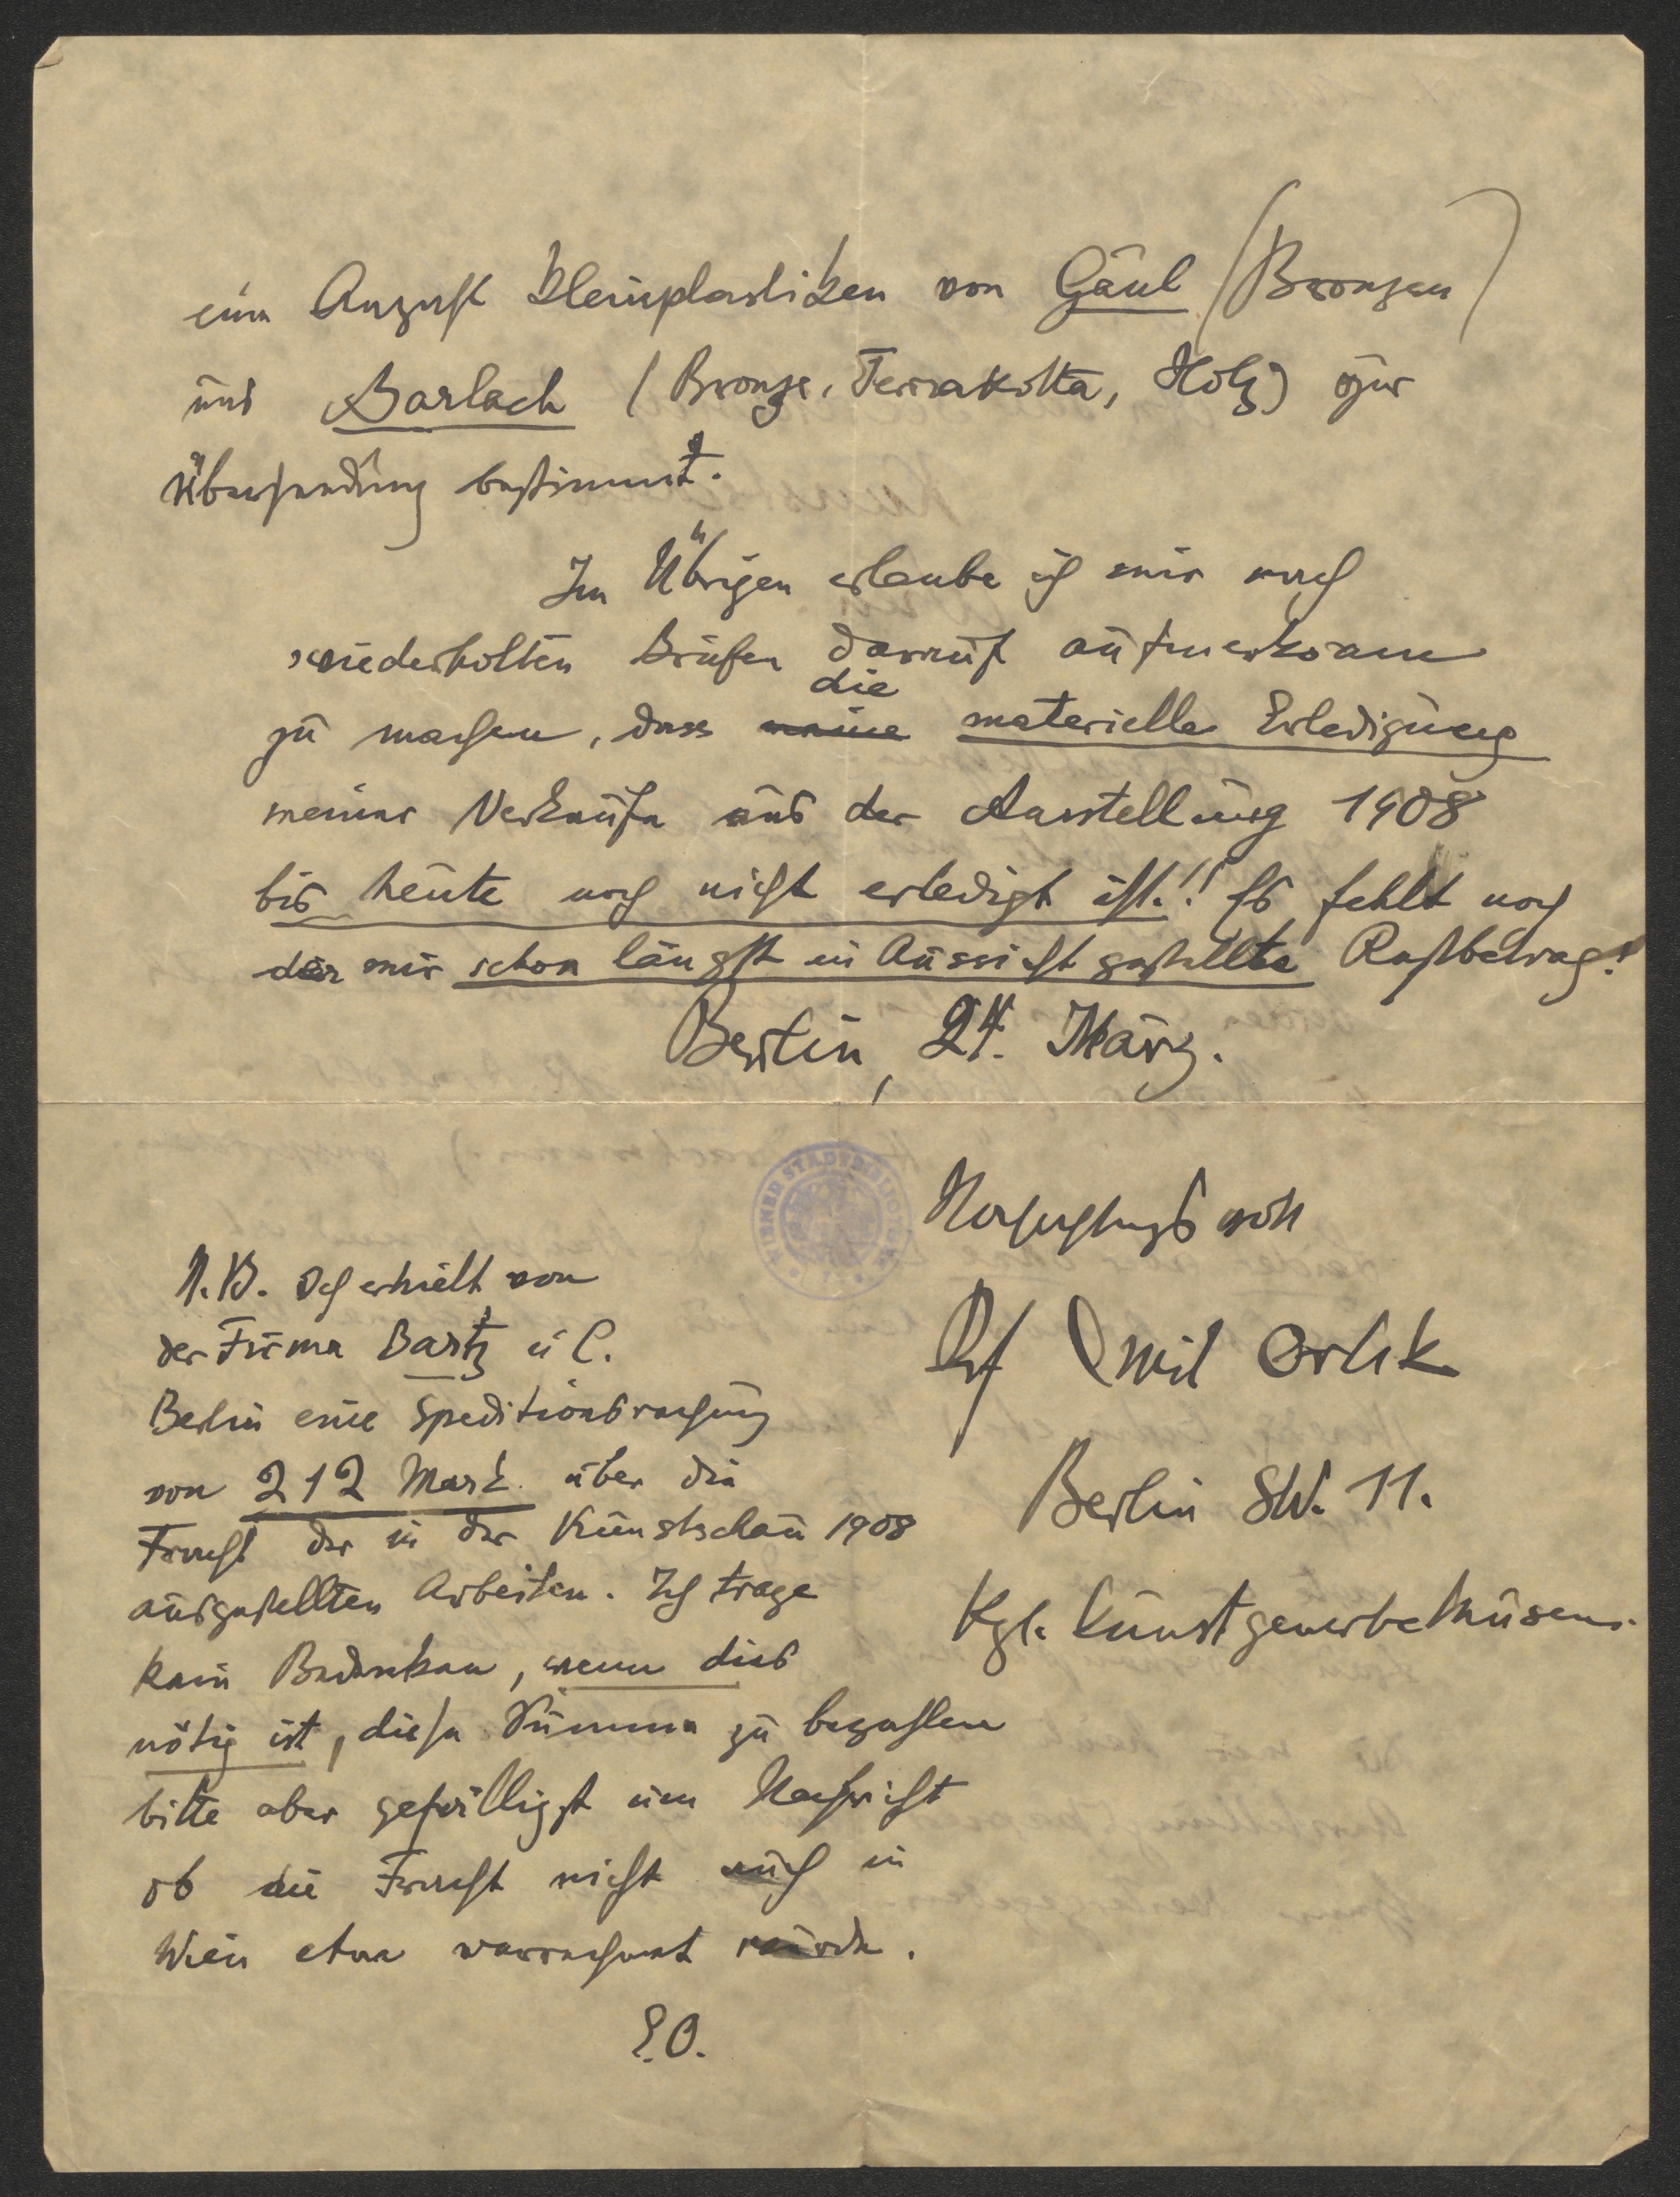 eine Anzahl Kleinplastiken von Gaul (Bronzen)
und Barlach (Bronze, Terrakotta, Holz) zur
Übersendung bestimmt.
Im Übrigen erlaube ich mir nach
wiederholten Briefen darauf aufmerksam
die
zu machen, dass meine materielle Erledigung
meiner Verkäufe aus der Ausstellung 1908
bis heute noch nicht erledigt ist!! Es fehlt noch
der mir schon längst in Aussicht gestellte Restbetrag!
Berlin, 24. März.
WIENER STADTBIBLIOTHEK
Hochachtungsvoll
Prof Emil Orlik
Berlin SW. 11.
Kgl. Kunstgewerbemuseum.
N.B. Ich erhielt von
der Firma Bartz u C.
Berlin eine Speditionsrechnung
von 212 Mark über die
Fracht der in der Kunstschau 1908
ausgestellten Arbeiten. Ich trage
kein Bedenken, wenn dies
nötig ist, diese Summe zu bezahlen
bitte aber gefälligst um Nachricht
ob die Fracht nicht auch in
Wien etwa verrechnet wurde.
E.O.